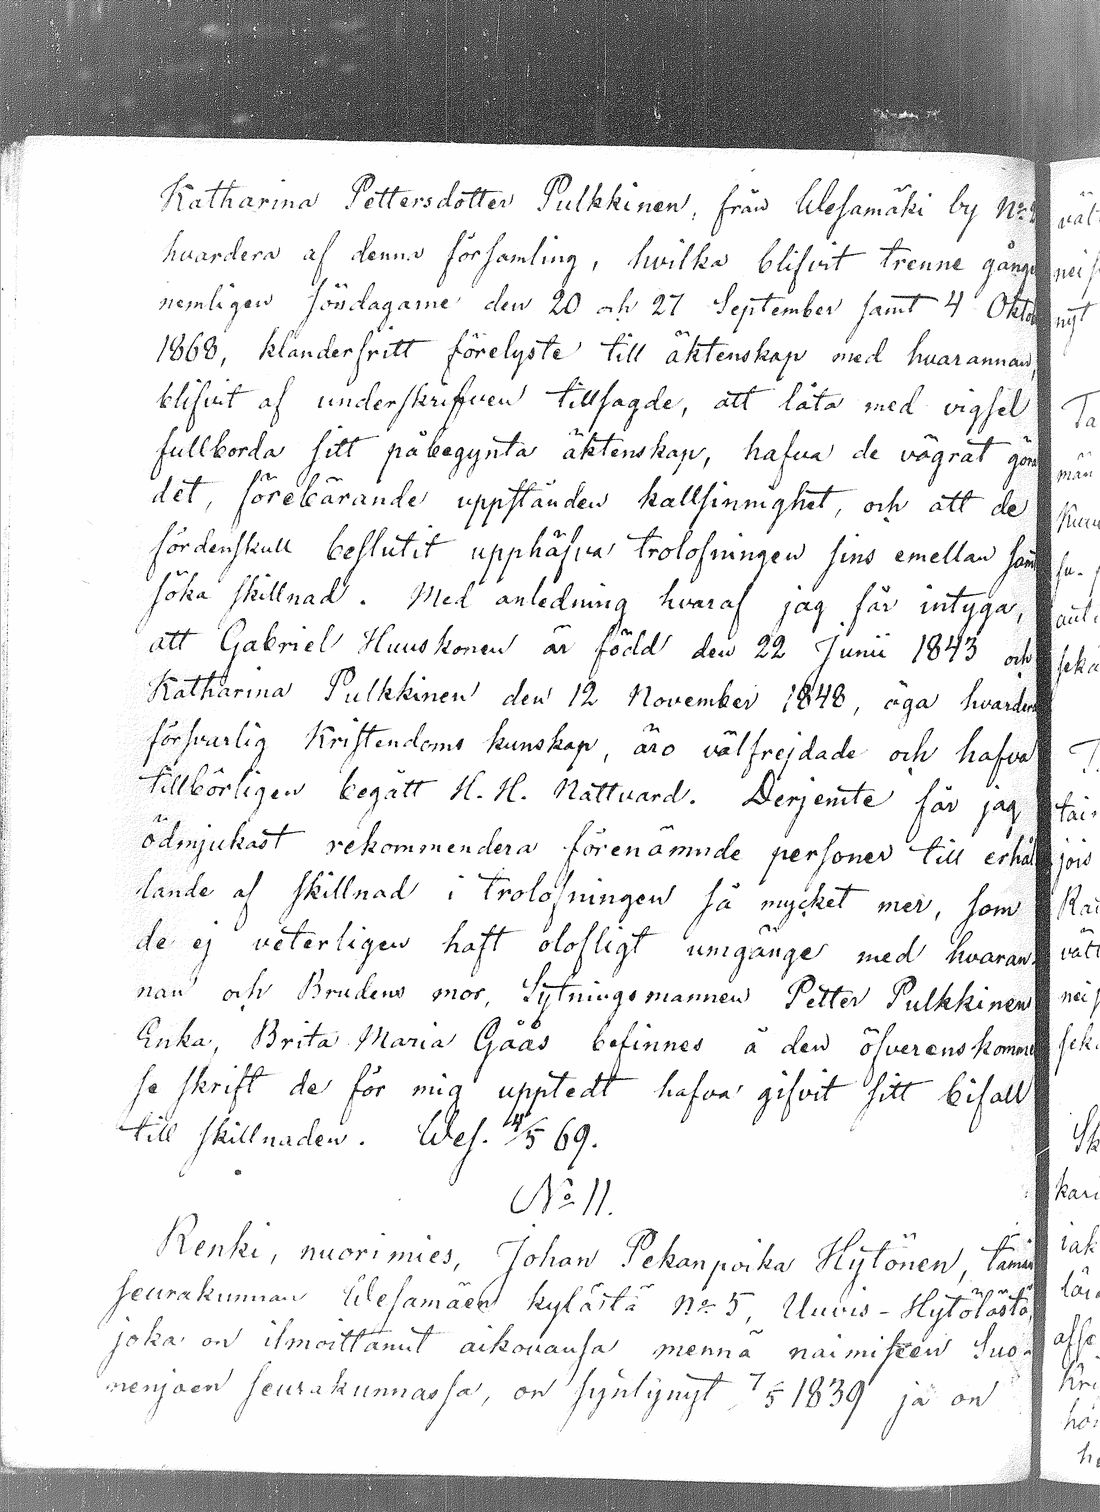 Katharina Pettersdotter Pulkkinen, från Wesamäki by No
hvardera af denna församling, hvilka blifvit trenne gånge
nemligen söndagarne den 20 och 27 September samt 4 Okto
1868, klanderfritt förelyste till äktenskap med hvarannan,
blifvit af underskrifven tillsagde, att låta med vigsel
fullborda sitt påbegynta äktenskap, hafva de vägrat göra
det, förebärande uppstånden kallsinnighet, och att de
fördenskull beslutit upphäfva trolofningen sins emellan sam
söka skillnad. Med anledning hvaraf jag får intyga,
att Gabriel Huuskonen är född den 22 Junii 1843 och
Katharina Pulkkinen den 12 November 1848, äga hvardera
försvarlig Kristendoms kunskap, äro välfrejdade och hafva
tillbörligen begått H. H. Nattvard. Derjemte får jag
ödmjukast rekommendera förenämnde personer till erhål
lande af skillnad i trolofningen så mycket mer, som
de ej veterligen haft olofligt umgänge med hvaran-
nan och Brudens mor, Sytningsmannen Petter Pulkkinens
Enka, Brita Maria Gåås befinnes å den öfverenskomme
se skrift de för mig upptedt hafva gifvit sitt bifall
till skillnaden. Wes. 4/5 69.
No 11.
Renki, nuorimies, Johan Pekanpoika Hytönen, tämän
seurakunnan Wesamäen kylästä No 5, Uuvis-Hytölästä,
joka on ilmoittanut aikovansa mennä naimiseen Suo-
nenjoen seurakunnassa, on syntynyt 7/5 1839 ja on